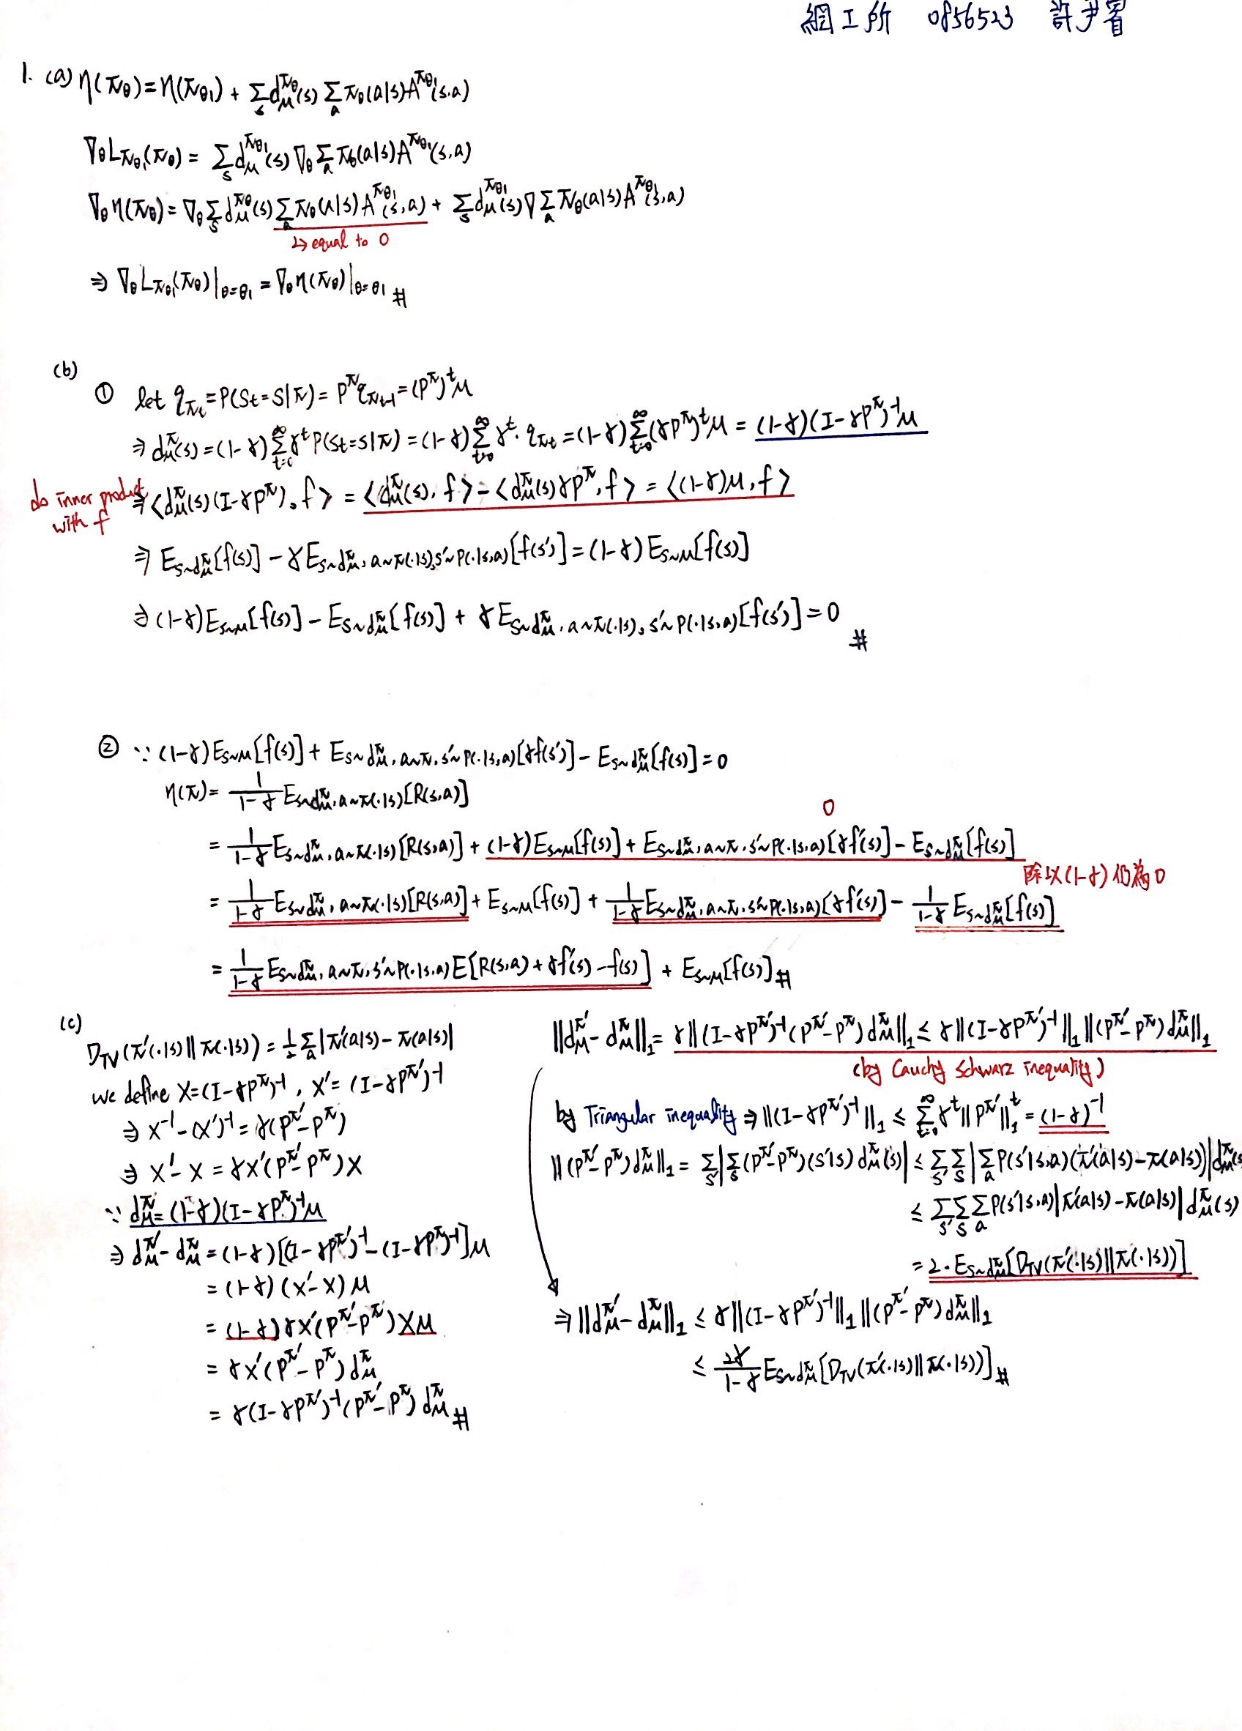 網工所 0856523 許尹睿
1. (a) η(π_θ) = η(π_θ1) + Σ_s d_μ^{π_θ}(s) Σ_a π_θ(a|s) A^{π_θ1}(s,a)
∇_θ L_{π_θ1}(π_θ) = Σ_s d_μ^{π_θ1}(s) ∇_θ Σ_a π_θ(a|s) A^{π_θ1}(s,a)
∇_θ η(π_θ) = ∇_θ Σ_s d_μ^{π_θ}(s) Σ_a π_θ(a|s) A^{π_θ1}(s,a) + Σ_s d_μ^{π_θ1}(s) ∇ Σ_a π_θ(a|s) A^{π_θ1}(s,a)
↳ equal to 0
⇒ ∇_θ L_{π_θ1}(π_θ)|_{θ=θ1} = ∇_θ η(π_θ)|_{θ=θ1} #
(b)
① let q_{πt} = P(St=S|π) = P^π q_{πt-1} = (P^π)^t μ
⇒ d_μ^π(s) = (1-γ) Σ_{t=0}^∞ γ^t P(St=s|π) = (1-γ) Σ_{t=0}^∞ γ^t · q_{πt} = (1-γ) Σ_{t=0}^∞ (γP^π)^t μ = (1-γ)(I-γP^π)^{-1} μ
do inner product with f ⇒ <d_μ^π(s)(I-γP^π), f> = <d_μ^π(s), f> - <d_μ^π(s)γP^π, f> = <(1-γ)μ, f>
⇒ E_{s~d_μ^π}[f(s)] - γE_{s~d_μ^π, a~π(·|s), s'~P(·|s,a)}[f(s')] = (1-γ) E_{s~μ}[f(s)]
⇒ (1-γ)E_{s~μ}[f(s)] - E_{s~d_μ^π}[f(s)] + γ E_{s~d_μ^π, a~π(·|s), s'~P(·|s,a)}[f(s')] = 0 #
② ∵ (1-γ)E_{s~μ}[f(s)] + E_{s~d_μ^π, a~π, s'~P(·|s,a)}[γf(s')] - E_{s~d_μ^π}[f(s)] = 0
η(π) = 1/(1-γ) E_{s~d_μ^π, a~π(·|s)}[R(s,a)]
0
= 1/(1-γ) E_{s~d_μ^π, a~π(·|s)}[R(s,a)] + (1-γ)E_{s~μ}[f(s)] + E_{s~d_μ^π, a~π, s'~P(·|s,a)}[γf'(s)] - E_{s~d_μ^π}[f(s)]
除以(1-γ) 仍為0
= 1/(1-γ) E_{s~d_μ^π, a~π(·|s)}[R(s,a)] + E_{s~μ}[f(s)] + 1/(1-γ) E_{s~d_μ^π, a~π, s'~P(·|s,a)}[γf'(s)] - 1/(1-γ) E_{s~d_μ^π}[f(s)]
= 1/(1-γ) E_{s~d_μ^π, a~π, s'~P(·|s,a)} E[R(s,a) + γf'(s) - f(s)] + E_{s~μ}[f(s)] #
(c)
D_TV(π'(·|s) || π(·|s)) = 1/2 Σ_a |π'(a|s) - π(a|s)|
we define X = (I-γP^π)^{-1}, X' = (I-γP^{π'})^{-1}
⇒ X^{-1} - (X')^{-1} = γ(P^{π'} - P^π)
⇒ X' - X = γX'(P^{π'} - P^π)X
∵ d_μ^π = (1-γ)(I-γP^π)^{-1} μ
⇒ d_μ^{π'} - d_μ^π = (1-γ)[(I-γP^{π'})^{-1} - (I-γP^π)^{-1}]μ
= (1-γ)(X'-X)μ
= (1-γ)γX'(P^{π'} - P^π)Xμ
= γX'(P^{π'} - P^π) d_μ^π
= γ(I-γP^{π'})^{-1}(P^{π'} - P^π) d_μ^π #
||d_μ^{π'} - d_μ^π||_1 = γ||(I-γP^{π'})^{-1}(P^{π'} - P^π) d_μ^π||_1 ≤ γ||(I-γP^{π'})^{-1}||_1 ||(P^{π'} - P^π) d_μ^π||_1
(by Cauchy Schwarz inequality)
by Triangular inequality ⇒ ||(I-γP^{π'})^{-1}||_1 ≤ Σ_{t=0}^∞ γ^t ||P^{π'}||_1^t = (1-γ)^{-1}
||(P^{π'} - P^π) d_μ^π||_1 = Σ_{s'} |Σ_s (P^{π'} - P^π)(s'|s) d_μ^π(s)| ≤ Σ_{s'} Σ_s |Σ_a P(s'|s,a)(π'(a|s) - π(a|s))| d_μ^π(s)
≤ Σ_{s'} Σ_s Σ_a P(s'|s,a) |π'(a|s) - π(a|s)| d_μ^π(s)
= 2 · E_{s~d_μ^π}[D_TV(π'(·|s) || π(·|s))]
⇒ ||d_μ^{π'} - d_μ^π||_1 ≤ γ||(I-γP^{π'})^{-1}||_1 ||(P^{π'} - P^π) d_μ^π||_1
≤ 2γ/(1-γ) E_{s~d_μ^π}[D_TV(π'(·|s) || π(·|s))] #